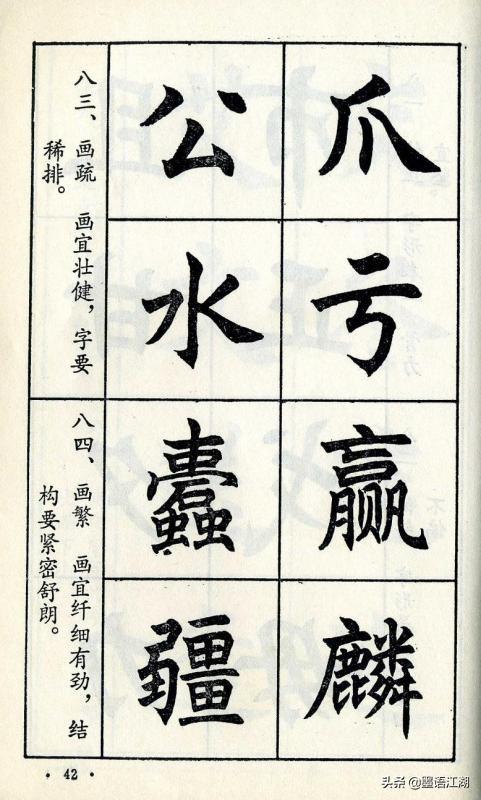 爪
亏
公
水
八三、 画疏 画宜壮健，字要
稀排。
赢
麟
蠹
疆
八四、 画繁 画宜纤细有劲，结
构要紧密舒朗。
· 42 ·
头条 @墨语江湖